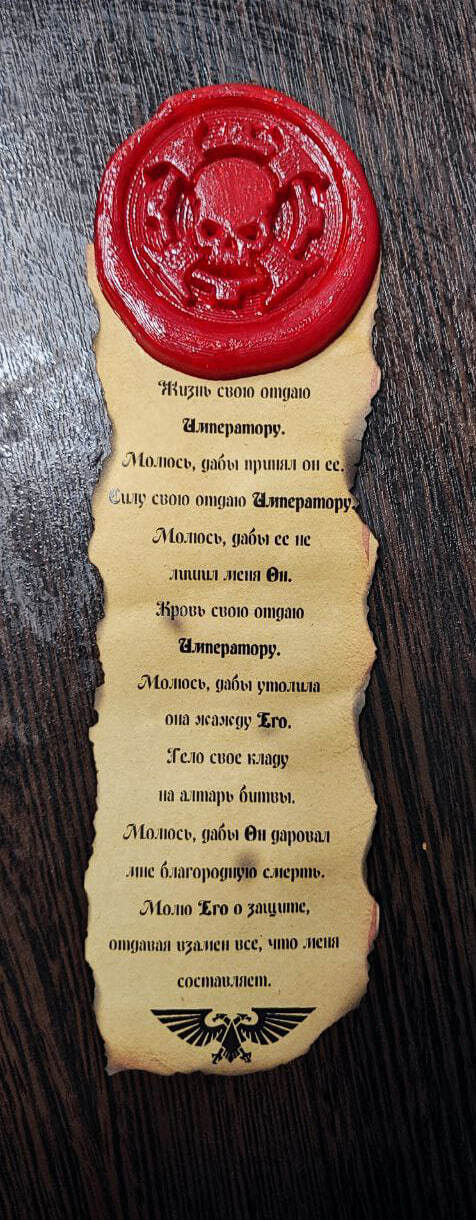 Жизнь свою отдаю
Императору.
Молюсь, дабы принял он ее.
Силу свою отдаю Императору.
Молюсь, дабы ее не
лишил меня Он.
Кровь свою отдаю
Императору.
Молюсь, дабы утолила
она жажду Его.
Тело свое кладу
на алтарь битвы.
Молюсь, дабы Он даровал
мне благородную смерть.
Молю Его о защите,
отдавая взамен все, что меня
составляет.